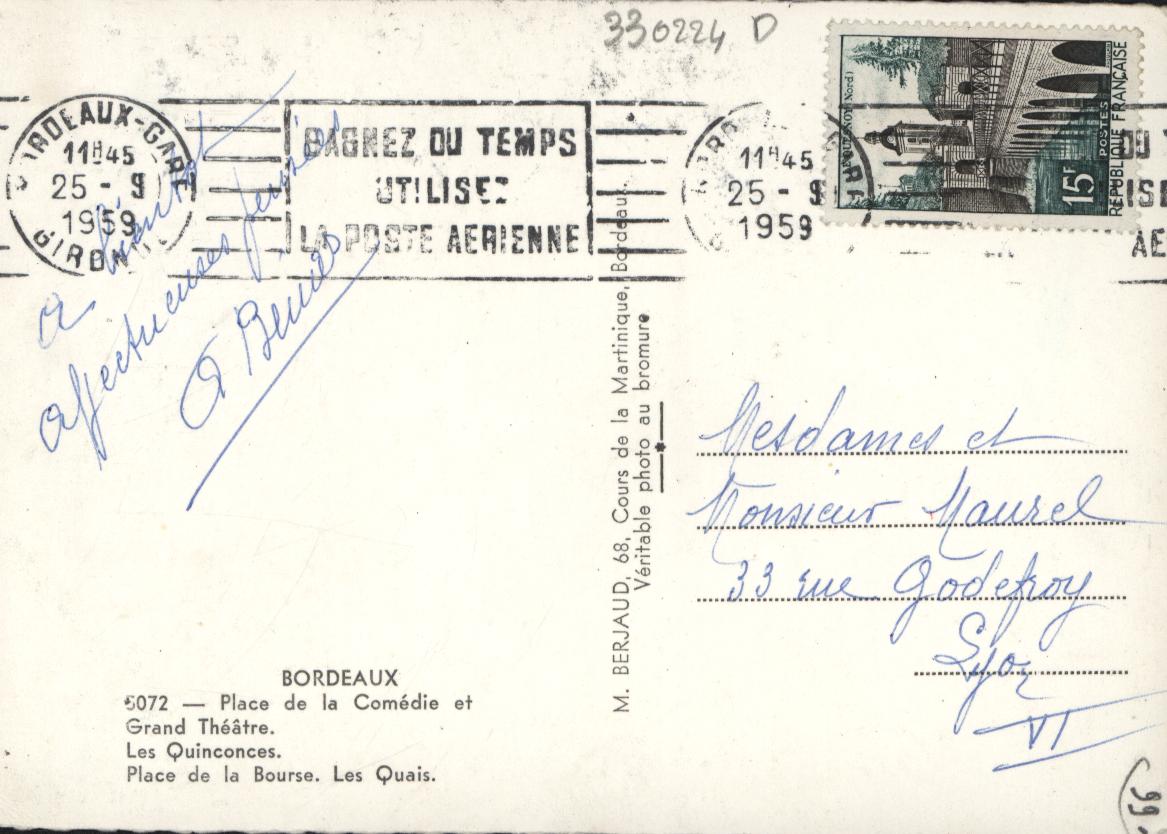 330224 D
BORDEAUX-GARE
11H45
25 - 9
1959
GIRONDE
GAGNEZ DU TEMPS
UTILISEZ
LA POSTE AERIENNE
11H45
25 - 9
1959
LE QUESNOY (Nord)
15F
POSTES
RÉPUBLIQUE FRANÇAISE
DU
ISE
AE
a bientôt
affectueuses pensées
M. BERJAUD, 68, Cours de la Martinique, Bordeaux.
Véritable photo au bromure
Mesdames et
Monsieur Maurel
33 rue Godefroy
Lyon
VI
BORDEAUX
5072 — Place de la Comédie et
Grand Théâtre.
Les Quinconces.
Place de la Bourse. Les Quais.